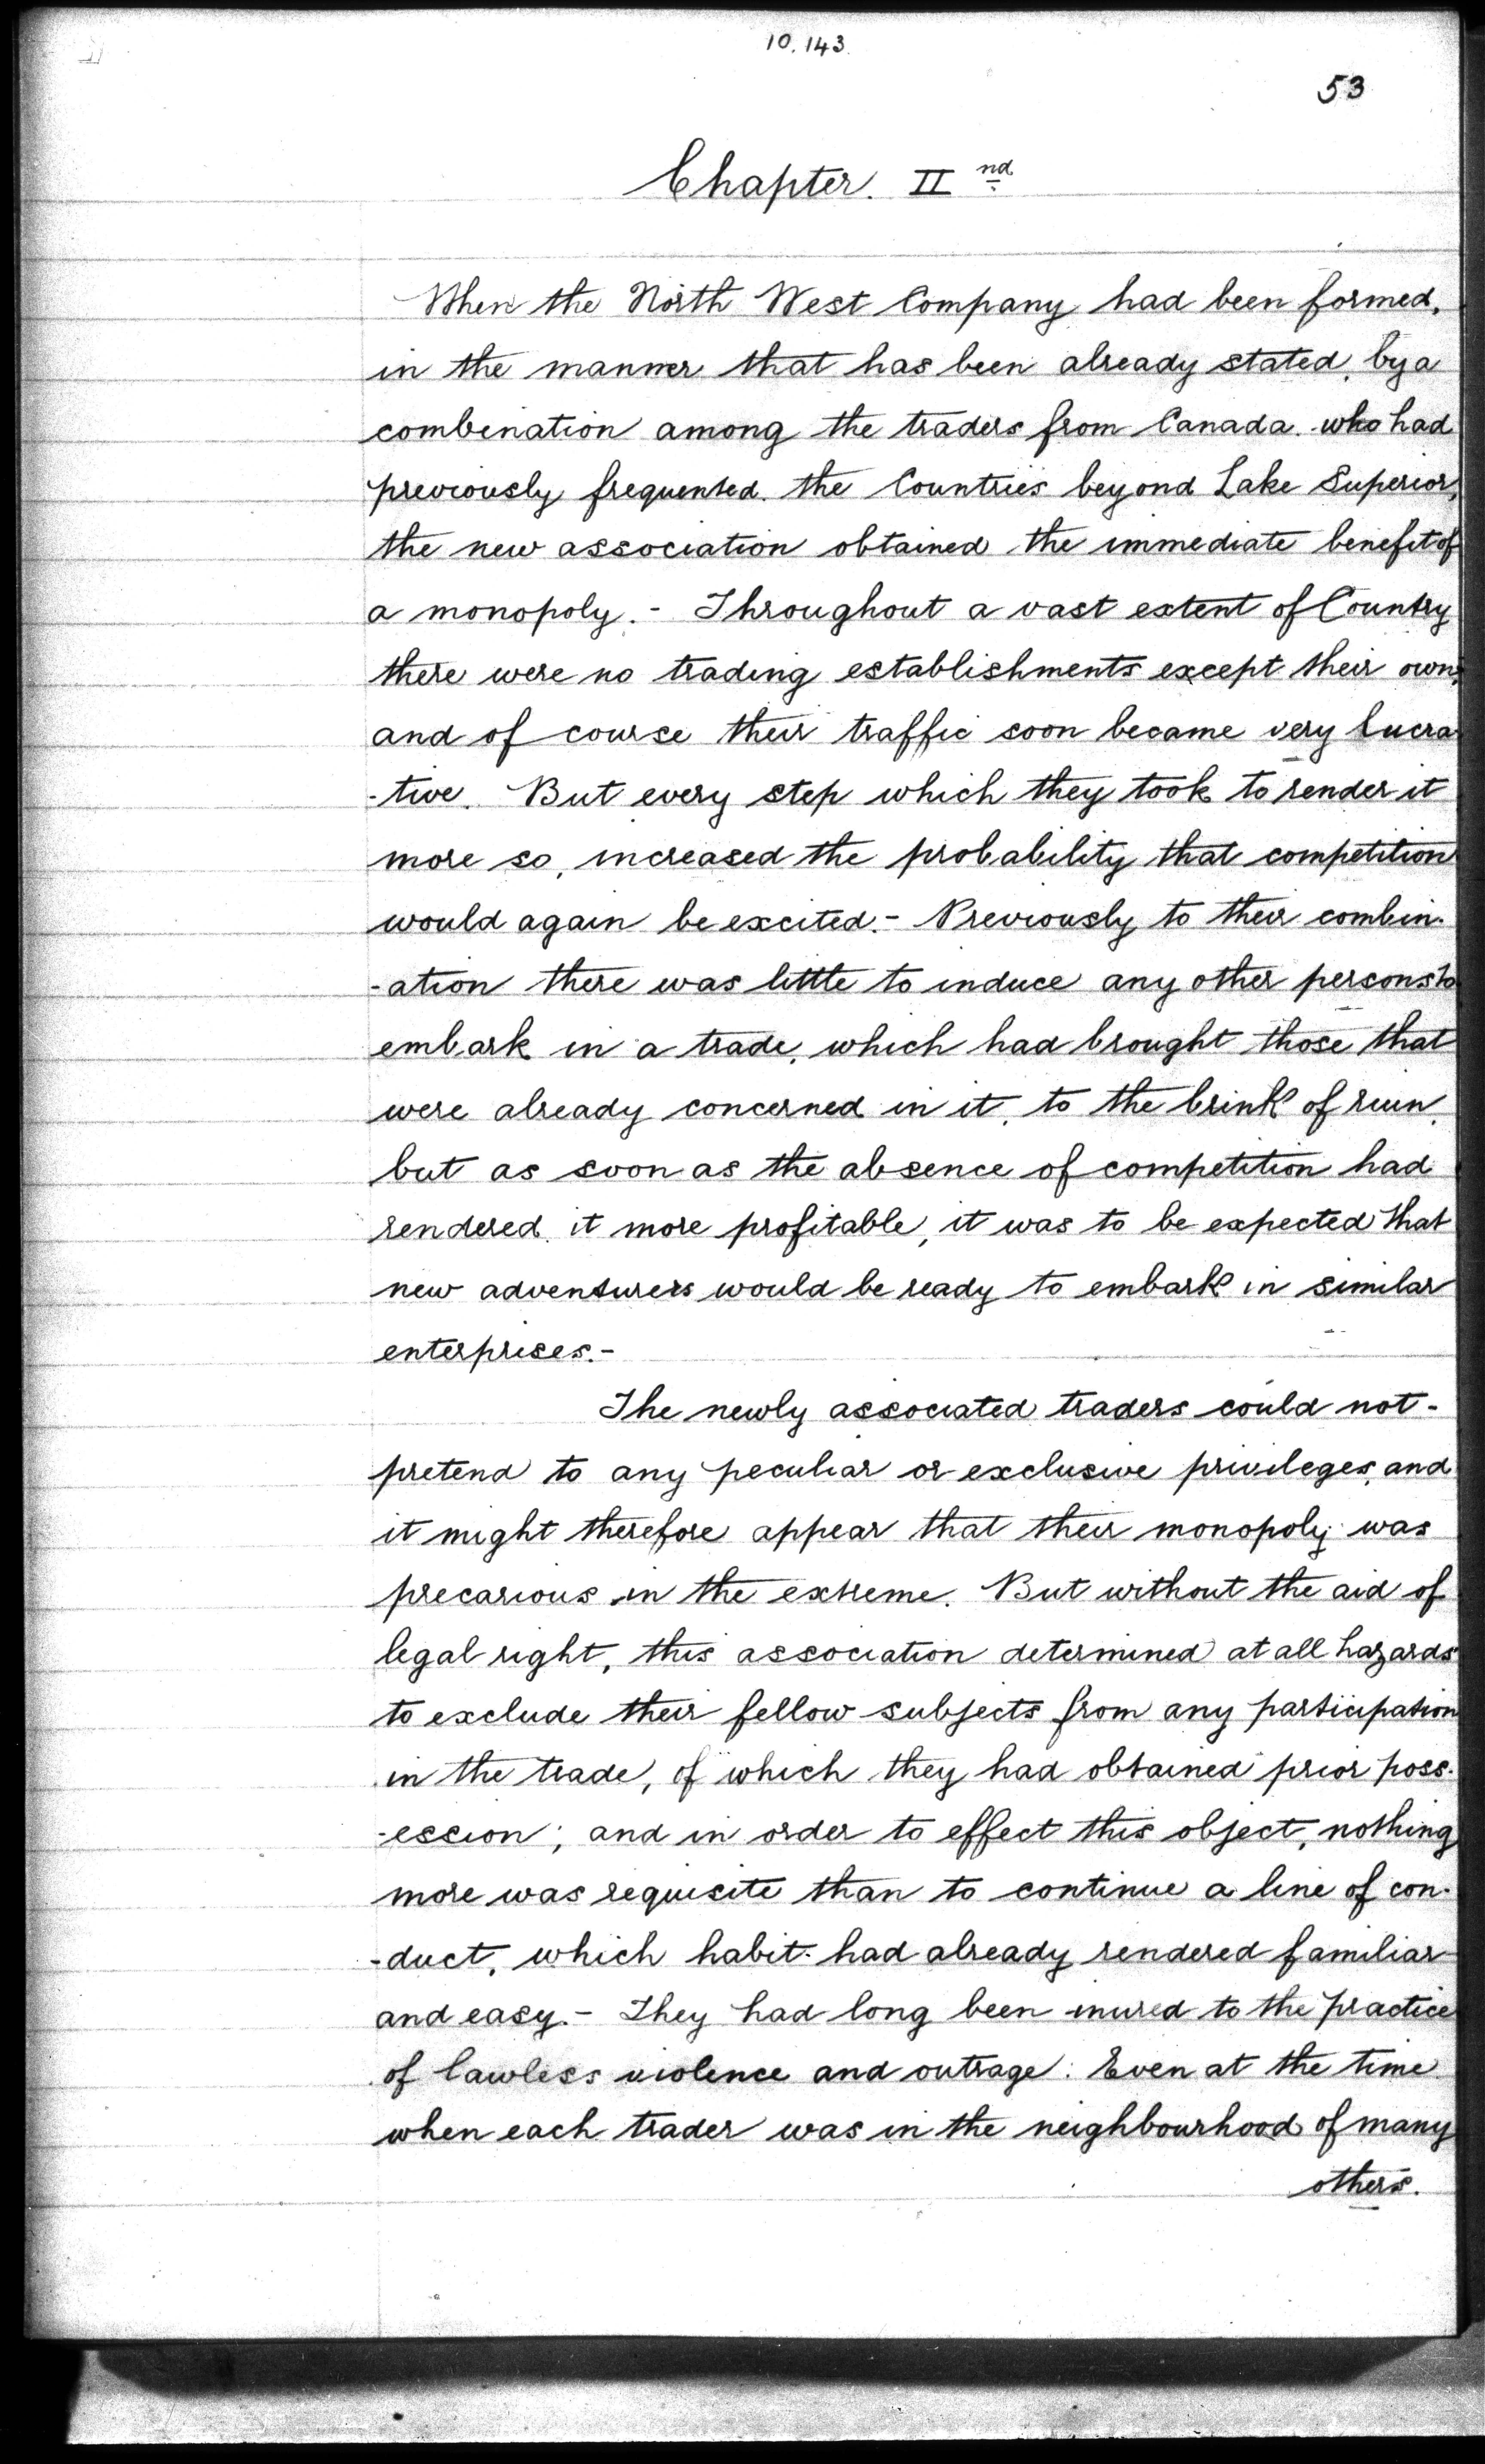 10.143.
53
Chapter. II nd
When the North West Company had been formed,
in the manner that has been already stated, by a
combination among the traders from Canada. who had
previously frequented. the Countries beyond Lake Superior,
the new association obtained the immediate benefit of
a monopoly. - Throughout a vast extent of Country
there were no trading establishments except their own;
and of course their traffic soon became very lucra
-tive. But every step which they took to render it
more so, increased the probability that competition
would again be excited. - Previously to their combin-
-ation there was little to induce any other persons to
embark in a trade, which had brought those that
were already concerned in it, to the brink of ruin,
but as soon as the absence of competition had
rendered it more profitable, it was to be expected that
new adventurers would be ready to embark in similar
enterprises. -
The newly associated traders could not -
pretend to any peculiar or exclusive privileges, and
it might therefore appear that their monopoly was
precarious in the extreme. But without the aid of
legal right, this association determined at all hazards
to exclude their fellow subjects from any participation
in the trade, of which they had obtained prior poss-
-ession; and in order to effect this object, nothing
more was requisite than to continue a line of con-
-duct, which habit had already rendered familiar
and easy. - They had long been inured to the practice
of lawless violence and outrage: Even at the time
when each trader was in the neighbourhood of many
others.